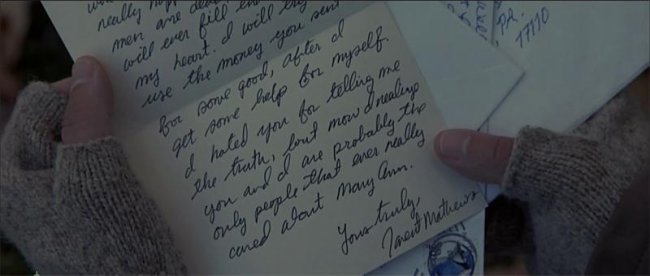 really happ
men are dea
will ever fill
my heart. I will try
use the money you sent
for some good, after I
get some help for myself.
I hated you for telling me
the truth, but now I realize
you and I are probably the
only people that ever really
cared about Mary Ann.
Yours truly,
Janet Mathews
PA.
17110